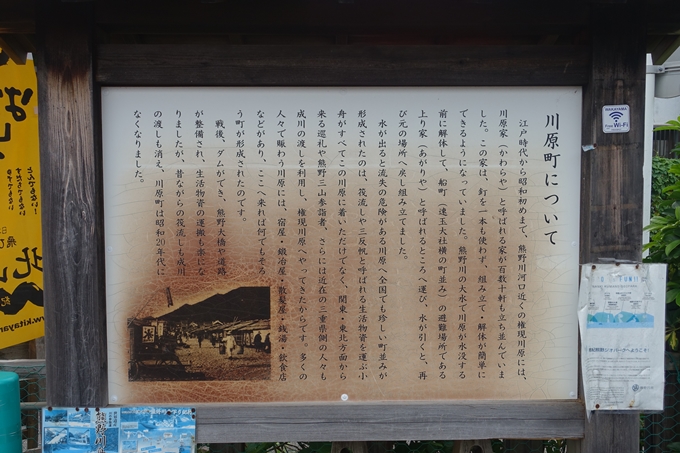 川原町について
江戸時代から昭和初めまで、熊野川河口近くの権現川原には、
川原家（かわらや）と呼ばれる家が百数十軒も立ち並んでいま
した。この家は、釘を一本も使わず、組み立て・解体が簡単に
できるようになっていました。熊野川の大水で川原が水没する
前に解体して、船町（速玉大社横の町並み）の避難場所である
上り家（あがりや）と呼ばれるところへ運び、水が引くと、再
び元の場所へ戻し組み立てました。
水が出ると流失の危険がある川原へ全国でも珍しい町並みが
形成されたのは、筏流しや三反帆と呼ばれる生活物資を運ぶ小
舟がすべてこの川原に着いただけでなく、関東・東北方面から
来る巡礼や熊野三山参詣者、さらには近在の三重県側の人々も
成川の渡しを利用し、権現川原へやってきたからです。多くの
人々で賑わう川原には、宿屋・鍛冶屋・散髪屋・銭湯・飲食店
などがあり、ここへ来れば何でもそろ
う町が形成されたのです。
戦後、ダムができ、熊野大橋や道路
が整備され、生活物資の運搬も楽にな
りましたが、昔ながらの筏流しも成川
の渡しも消え、川原町は昭和20年代に
なくなりました。
WAKAYAMA
Free Wi-Fi
www.kitayam